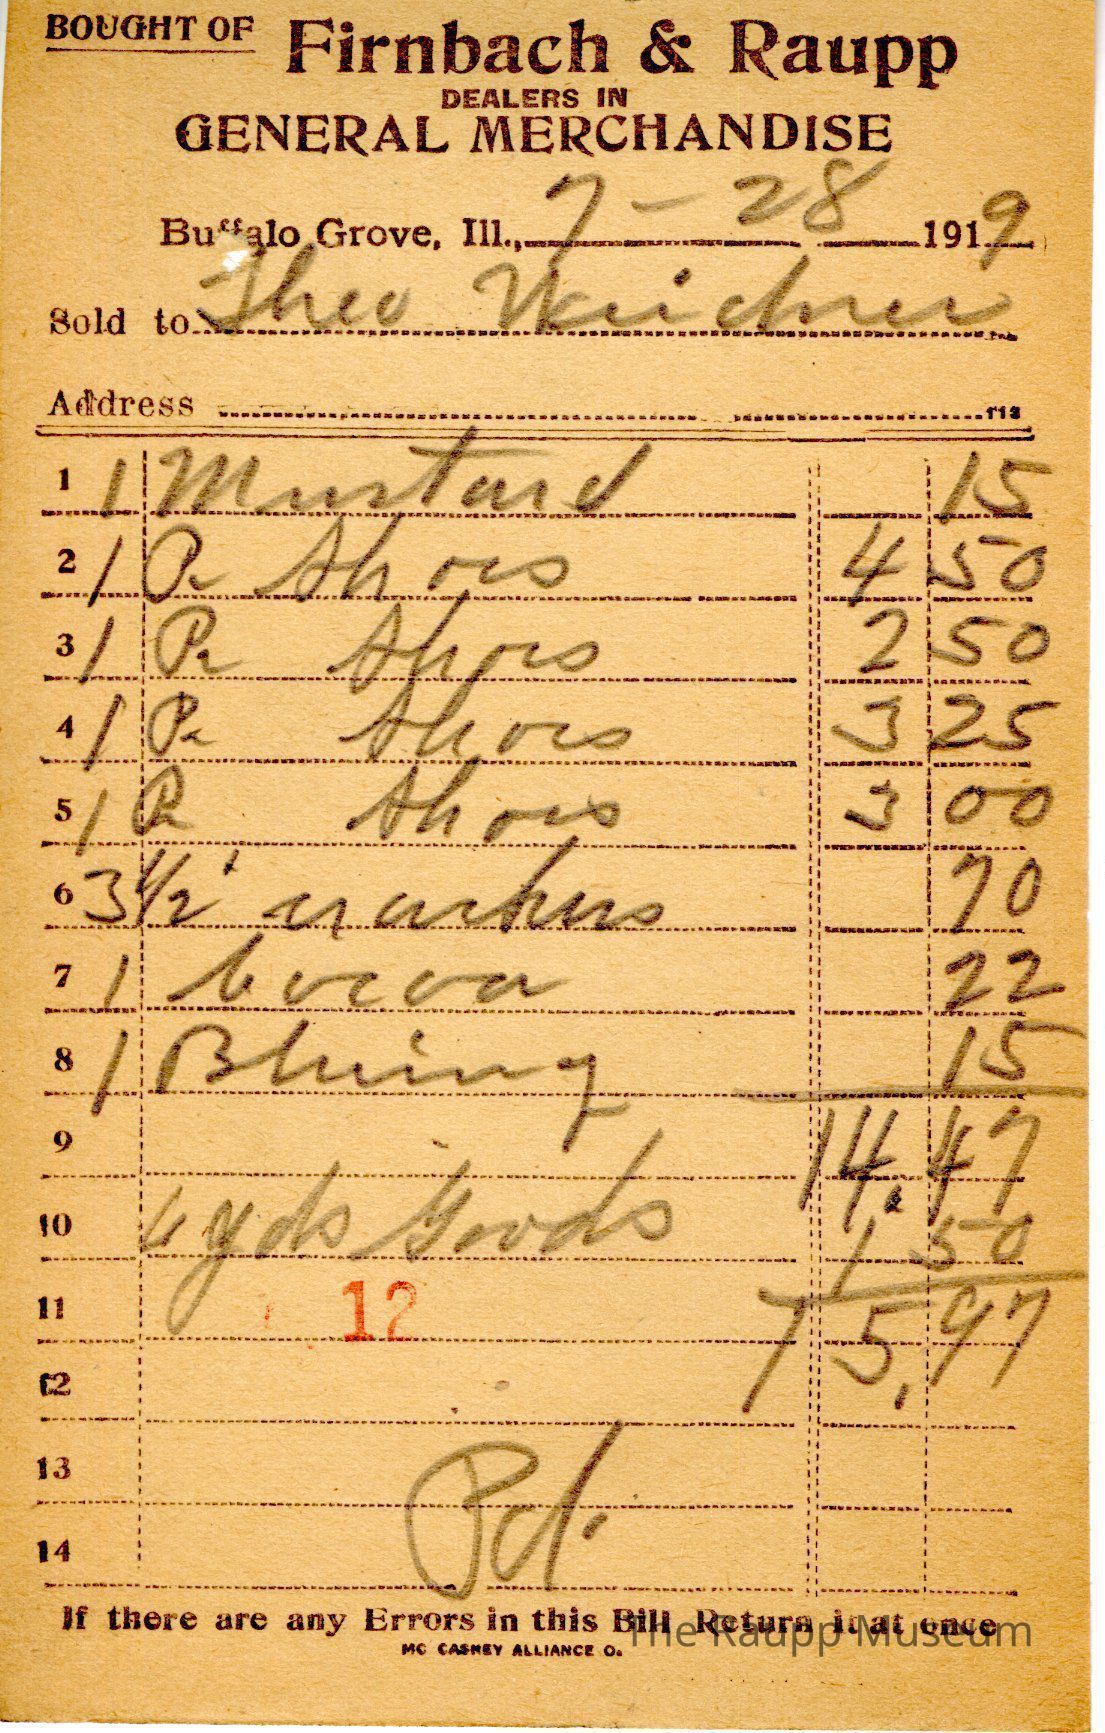 BOUGHT OF Firnbach & Raupp
DEALERS IN
GENERAL MERCHANDISE
Buffalo Grove, Ill., 7-28 1919
Sold to Theo Weidner
Address 113
1 1 Mustard 15
2 1 Pr Shoes 4 50
3 1 Pr Shoes 2 50
4 1 Pr Shoes 3 25
5 1 Pr Shoes 3 00
6 3 1/2 crackers 70
7 1 Cocoa 22
8 1 Bluing 15
9 14.47
10 6 yds Goods 1 50
11 12 15,97
12
13 Pd.
14
If there are any Errors in this Bill Return it at once
The Raupp Museum
MC CASKEY ALLIANCE O.